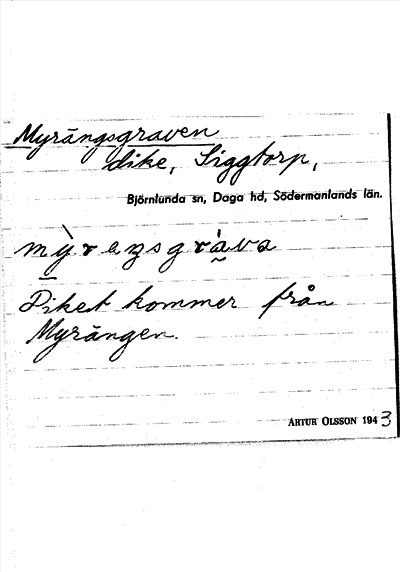 Myrängsgraven
dike, Siggtorp,
Björnlunda sn, Daga hd, Södermanlands län.
mỳreŋsgrà̰va
Diket kommer från
Myrängen.
ARTUR OLSSON 1943